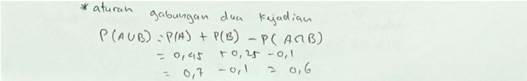 * aturan gabungan dua kejadian
P(A∪B) = P(A) + P(B) - P(A∩B)
= 0,45 + 0,25 - 0,1
= 0,7 - 0,1 = 0,6